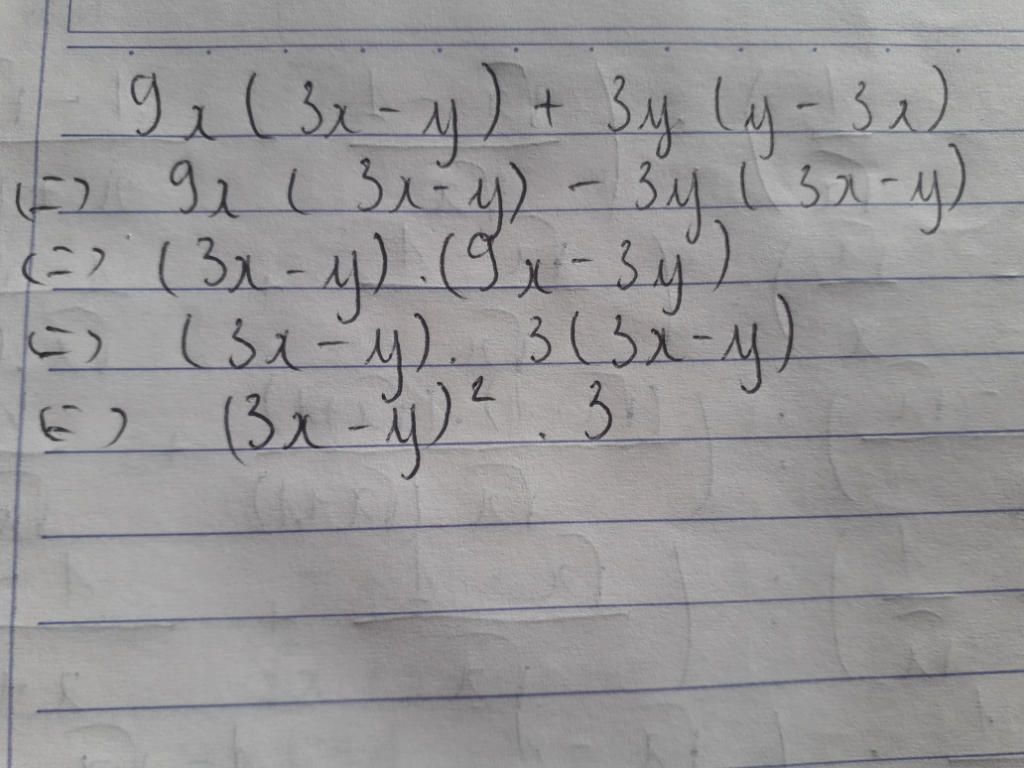 9x ( 3x - y ) + 3y ( y - 3x )
<=> 9x ( 3x - y ) - 3y ( 3x - y )
<=> ( 3x - y ) . ( 9x - 3y )
<=> ( 3x - y ) . 3 ( 3x - y )
<=> ( 3x - y )² . 3